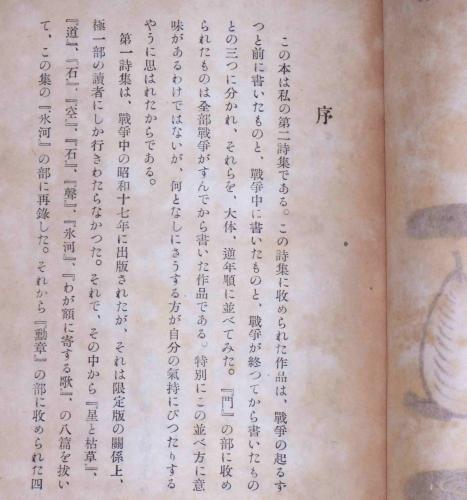 序
この本は私の第二詩集である。この詩集に收められた作品は、戰爭の起るず
つと前に書いたものと、戰爭中に書いたものと、戰爭が終つてから書いたもの
との三つに分かれ、それらを、大体、逆年順に並べてみた。『門』の部に收め
られたものは全部戰爭がすんでから書いた作品である。特別にこの並べ方に意
味があるわけではないが、何となしにさうする方が自分の氣持にぴつたりする
やうに思はれたからである。
第一詩集は、戰爭中の昭和十七年に出版されたが、それは限定版の關係上、
極一部の讀者にしか行きわたらなかつた。それで、その中から『星と枯草』、
『道』、『石』、『空』、『石』、『聲』、『氷河』、『わが額に寄する歌』、の八篇を拔い
て、この集の『氷河』の部に再錄した。それから『勳章』の部に收められた四